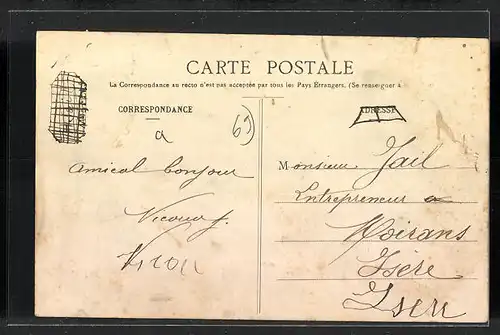 CARTE POSTALE
La Correspondance au recto n'est pas acceptée par tous les Pays Étrangers. (Se renseigner à
CORRESPONDANCE
ADRESSE
a
69)
amical bonjour
Monsieur Jail
Entrepreneur a
Moirans
Isère
Isère